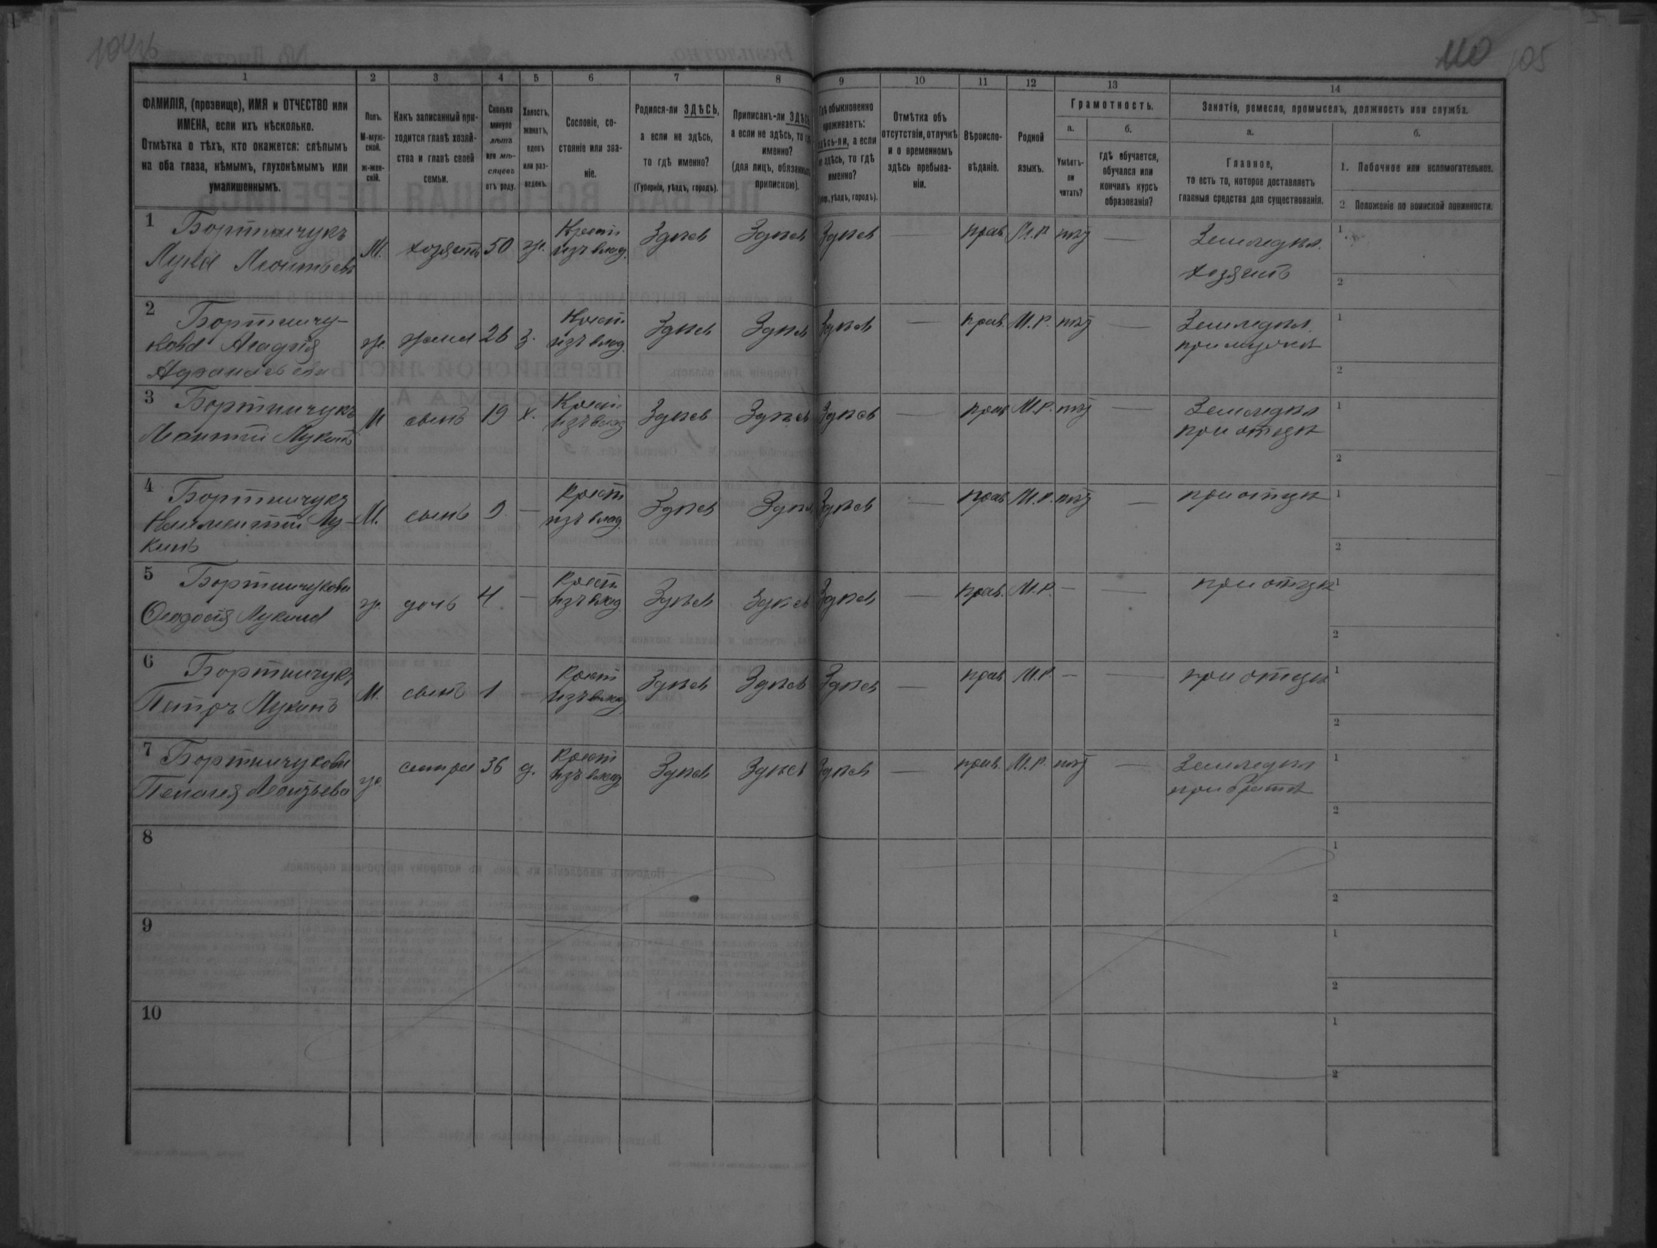 110
105
1
2
3
4
5
6
7
8
9
10
11
12
13
14
ФАМИЛІЯ, (прозвище), ИМЯ и ОТЧЕСТВО или
ИМЕНА, если ихъ нѣсколько.
Отмѣтка о тѣхъ, кто окажется: слѣпымъ
на оба глаза, нѣмымъ, глухонѣмымъ или
умалишеннымъ.
Полъ.
М-муж-
ской.
ж-жен-
скій.
Какъ записанный при-
ходится главѣ хозяй-
ства и главѣ своей
семьи.
Сколько
минуло
лѣтъ
или мѣ-
сяцевъ
отъ роду.
Холостъ,
женатъ,
вдовъ
или раз-
веденъ.
Сословіе, со-
стояніе или зва-
ніе.
Родился-ли ЗДѢСЬ,
а если не здѣсь,
то гдѣ именно?
(Губернія, уѣздъ, городъ).
Приписанъ-ли ЗДѢСЬ
а если не здѣсь, то гдѣ
именно?
(для лицъ, обязанныхъ
припискою).
Гдѣ обыкновенно
проживаетъ:
здѣсь-ли, а если
не здѣсь, то гдѣ
именно?
уѣздъ, городъ).
Отмѣтка объ
отсутствіи, отлучкѣ
и о временномъ
здѣсь пребыва-
ніи.
Вѣроиспо-
вѣданіе.
Родной
языкъ.
Грамотность.
а.
Умѣетъ-
ли
читать?
б.
гдѣ обучается,
обучался или
кончилъ курсъ
образованія?
Занятія, ремесло, промыселъ, должность или служба.
а.
Главное,
то есть то, которое доставляетъ
главныя средства для существованія.
б.
1. Побочное или вспомогательное.
2 Положеніе по воинской повинности:
1 Бортничукъ
Лука Леонтьевъ
М. хозяинъ 50 ж. Крест. изъ влад. Здѣсь Здѣсь Здѣсь — прав. М.Р. нѣт —
Земледѣл.
хозяинъ
1
2
2 Бортничу-
кова Агафія
Афанасьева
ж. жена 26 з. Крест. изъ влад. Здѣсь Здѣсь Здѣсь — прав. М.Р. нѣт —
Земледѣл.
при мужѣ
1
2
3 Бортничукъ
Леонтій Лукинъ
М сынъ 19 х. Крест. изъ влад. Здѣсь Здѣсь Здѣсь — прав. М.Р. нѣт —
Земледѣл
при отцѣ
1
2
4 Бортничукъ
Климентій Лу-
кинъ
М. сынъ 9 — Крест. изъ влад. Здѣсь Здѣсь Здѣсь — прав. М.Р. нѣт —
при отцѣ
1
2
5 Бортничукова
Феодосія Лукина
ж. дочь 4. — Крест изъ влад Здѣсь Здѣсь Здѣсь — прав. М.Р. — —
при отцѣ
1
2
6 Бортничукъ
Петръ Лукинъ
М. сынъ 1 — Крест изъ влад Здѣсь Здѣсь Здѣсь — прав М.Р. — —
при отцѣ
1
2
7 Бортничукова
Пелагея Леонтьева
ж. сестра 36 д. Крест изъ влад Здѣсь Здѣсь Здѣсь — прав. М.Р. нѣт —
Земледѣл
при братѣ
1
2
8
1
2
9
1
2
10
1
2